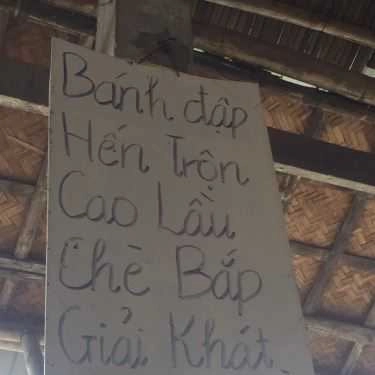 Bánh đập
Hến Trộn
Cao Lầu
Chè Bắp
Giải Khát.